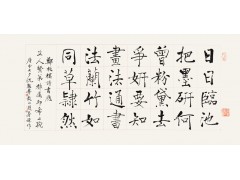 日日臨池
把墨研何
曾粉黛去
爭妍要知
畫法通書
法蘭竹如
同草隸然
鄭板橋詩書應